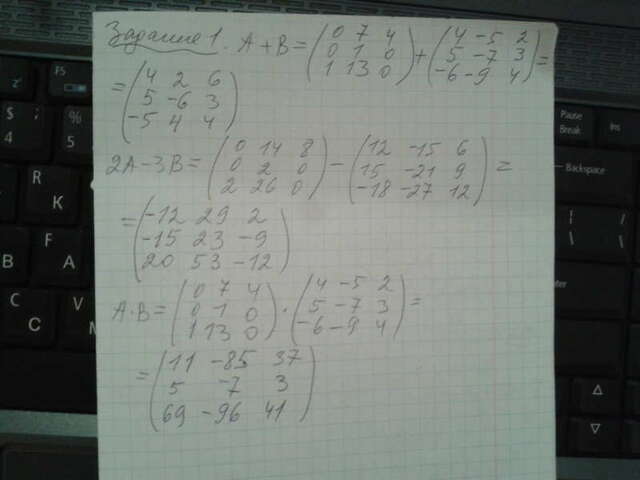 Задание 1. A+B = (0 7 4 / 0 1 0 / 1 13 0) + (4 -5 2 / 5 -7 3 / -6 -9 4) =
= (4 2 6 / 5 -6 3 / -5 4 4)
2A-3B = (0 14 8 / 0 2 0 / 2 26 0) - (12 -15 6 / 15 -21 9 / -18 -27 12) =
= (-12 29 2 / -15 23 -9 / 20 53 -12)
A·B = (0 7 4 / 0 1 0 / 1 13 0) · (4 -5 2 / 5 -7 3 / -6 -9 4) =
= (11 -85 37 / 5 -7 3 / 69 -96 41)
F5
$
4
;
%
5
R
K
F
A
B
C
V
Pause
Break
Ins
|
\
/
\